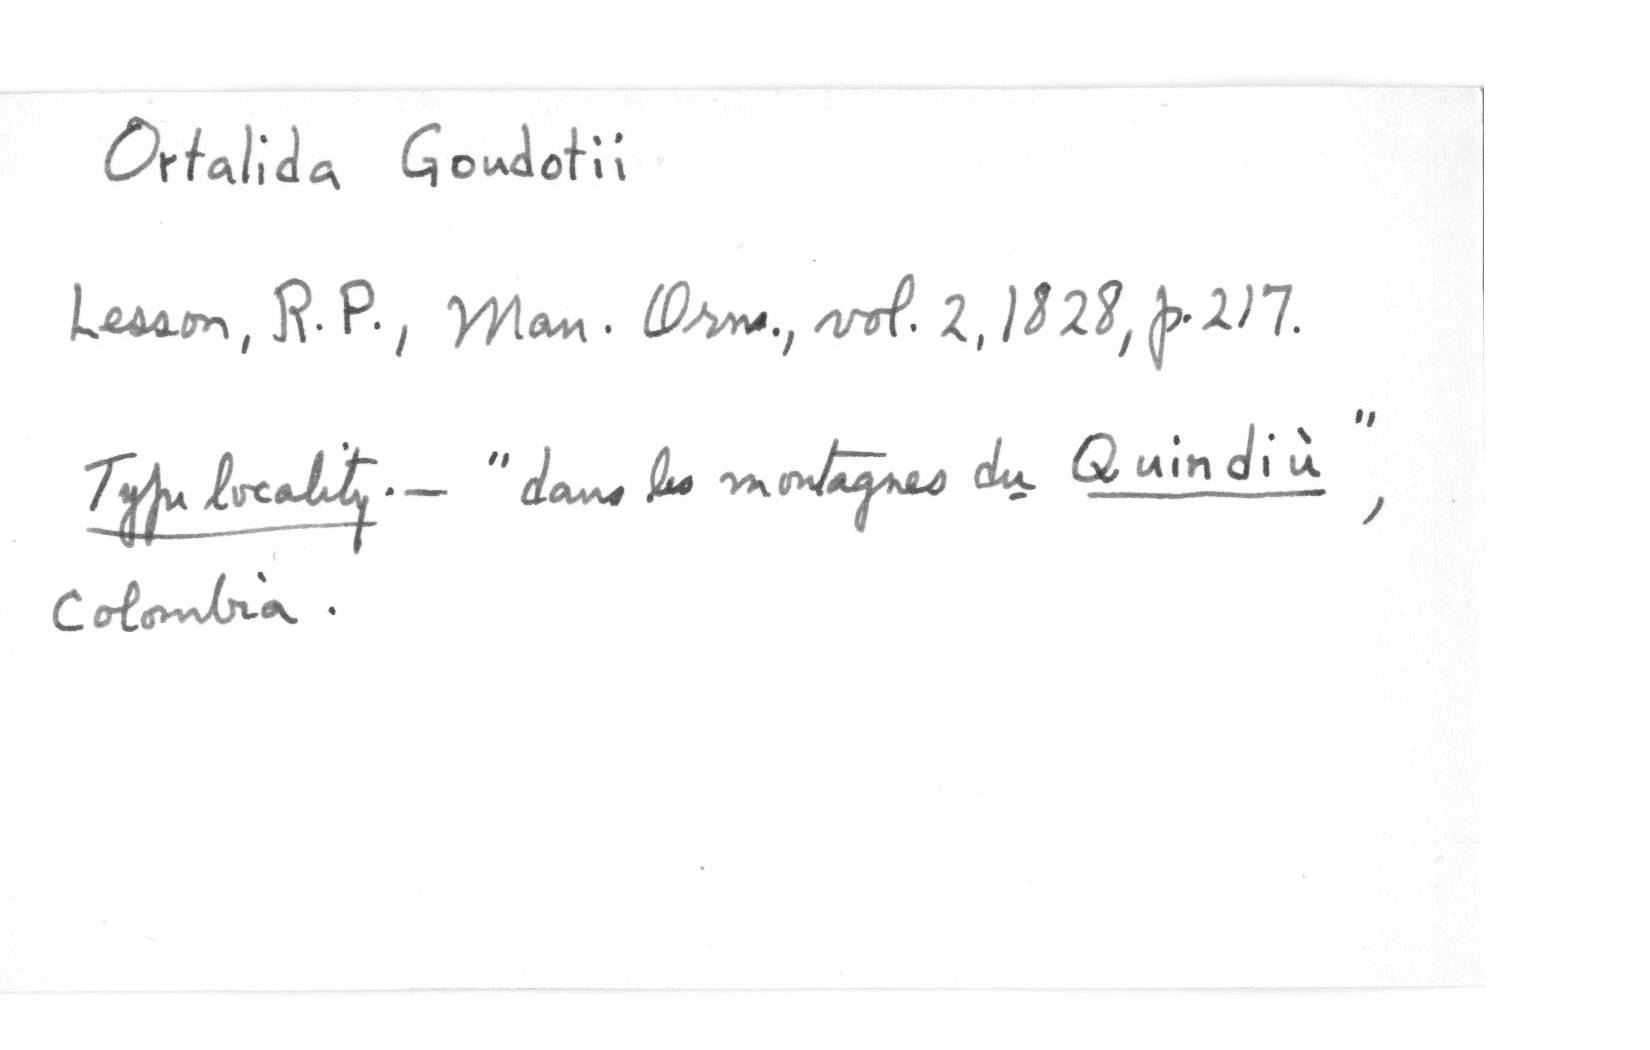 Ortalida Goudotii
Lesson, R. P., Man. Orn., vol. 2, 1828, p. 217.
Type locality.— "dans les montagnes du Quindiù",
Colombia.